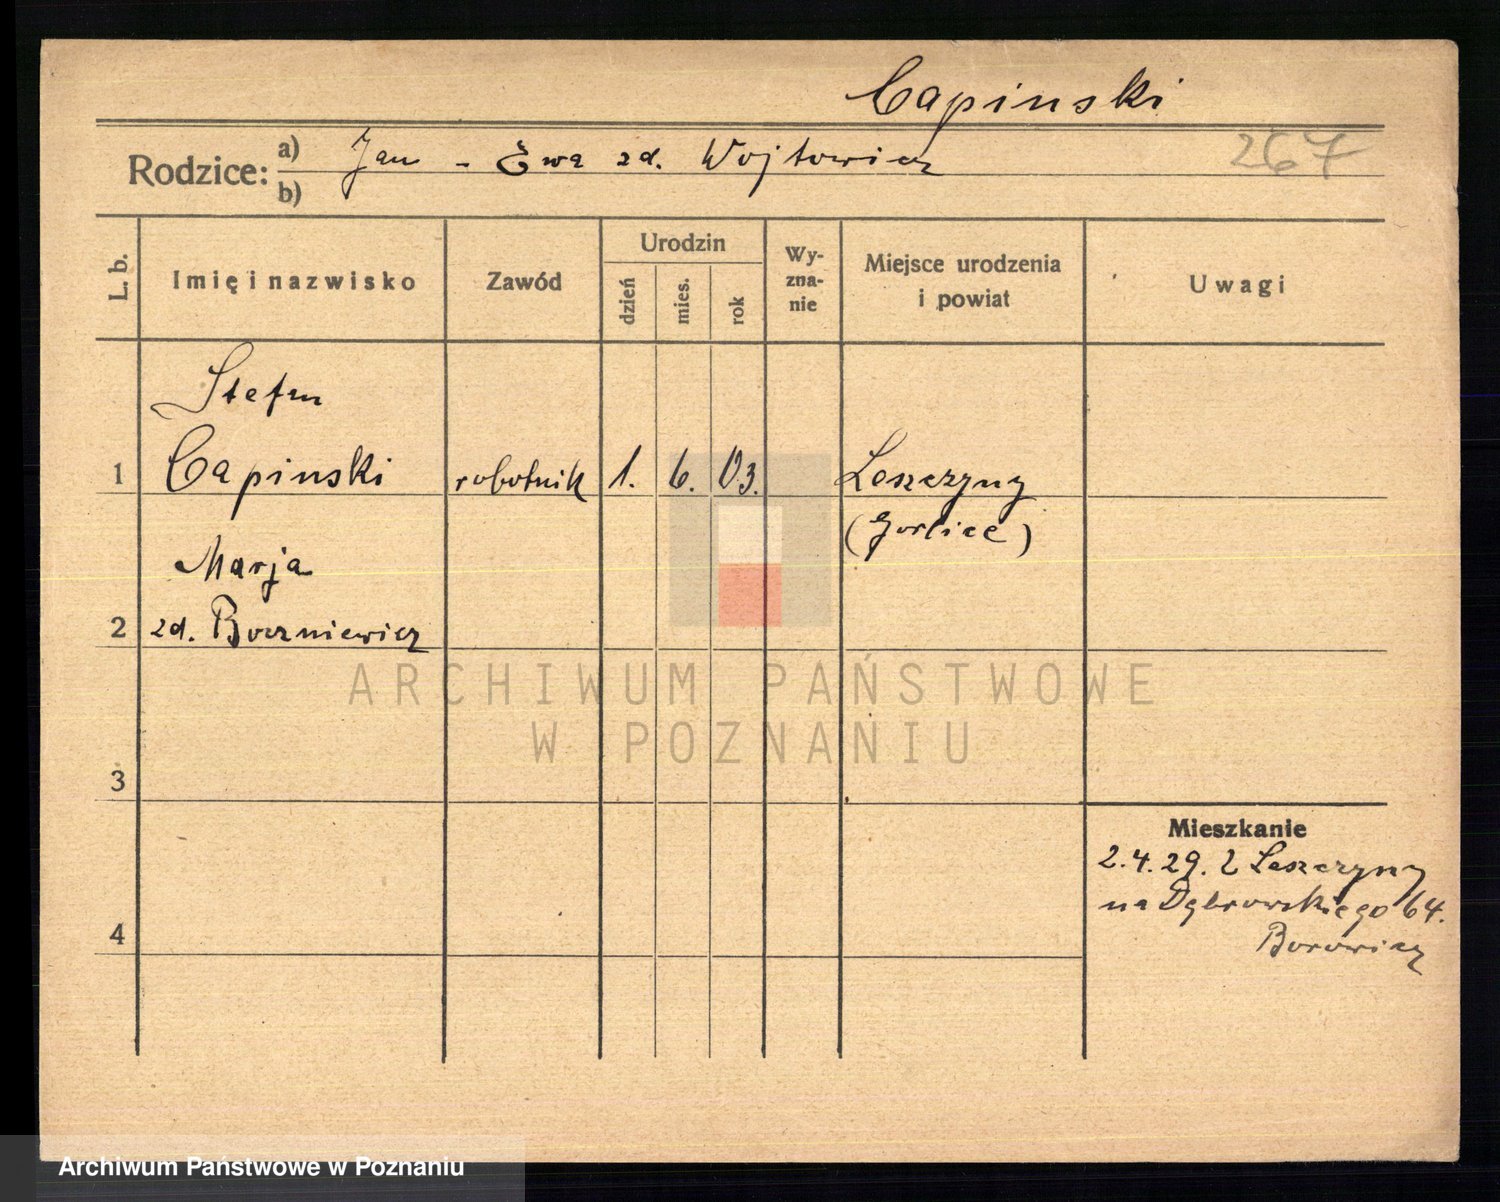 Capinski
Rodzice: a) Jan - Ewa zd. Wojtowicz 267
b)
L. b. Imię i nazwisko Zawód Urodzin dzień mies. rok Wy-zna-nie Miejsce urodzenia i powiat Uwagi
Stefan
1 Capinski robotnik 1. 6. 03. Leszczyny
(Gorlice)
Marja
2 zd. Boczniewicz
ARCHIWUM PAŃSTWOWE
W POZNANIU
3
Mieszkanie
2.4.29. z Leszczyny
na Dąbrowskiego 64.
4
Borowicz
Archiwum Państwowe w Poznaniu